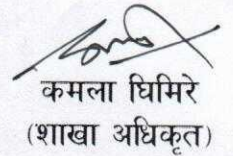 कमला घिमिरे
(शाखा अधिकृत)